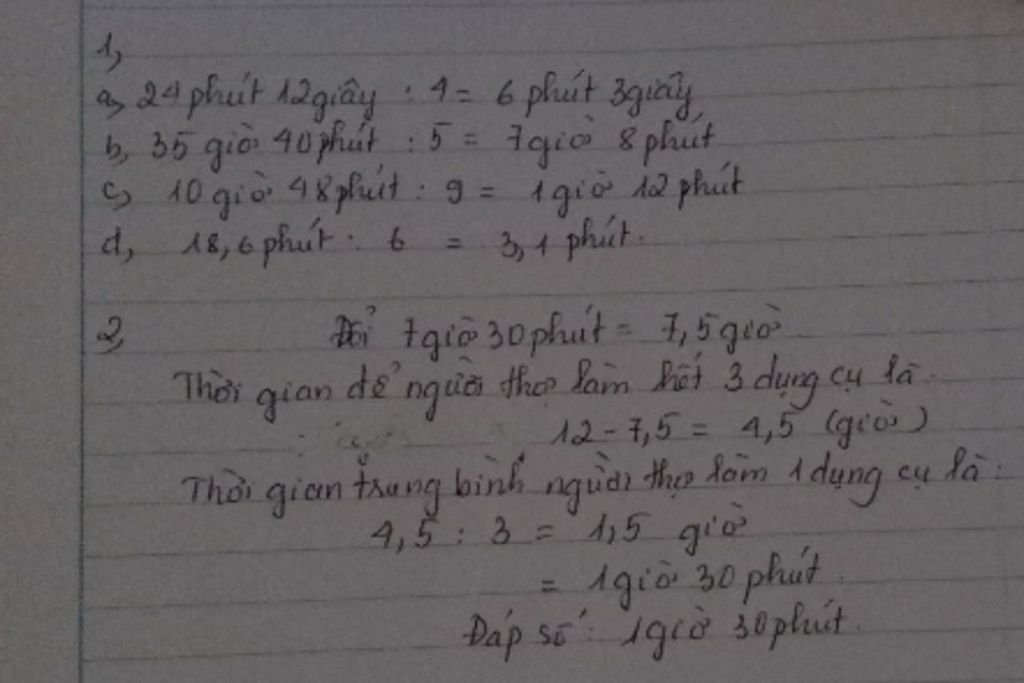 1,
a, 24 phút 12 giây : 4 = 6 phút 3 giây
b, 35 giờ 40 phút : 5 = 7 giờ 8 phút
c, 10 giờ 48 phút : 9 = 1 giờ 12 phút
d, 18,6 phút : 6 = 3,1 phút.
2, Đổi 7 giờ 30 phút = 7,5 giờ
Thời gian để người thợ làm hết 3 dụng cụ là.
12 - 7,5 = 4,5 (giờ)
Thời gian trung bình người thợ làm 1 dụng cụ là:
4,5 : 3 = 1,5 giờ
= 1 giờ 30 phút.
Đáp số: 1 giờ 30 phút.